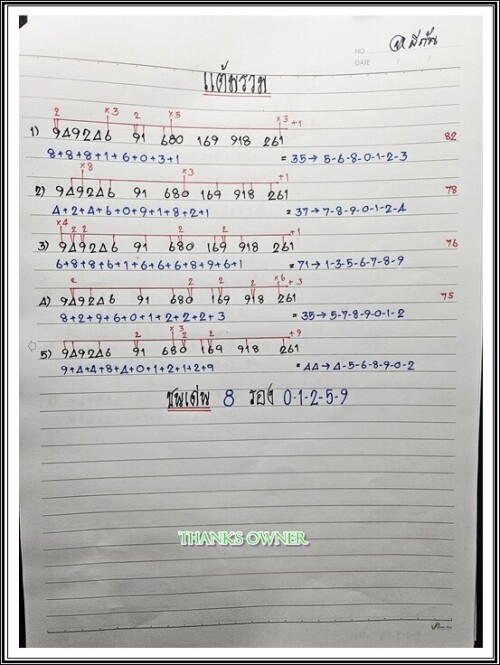 NO.
DATE / /
แต้มรวม
2 ×3 2 ×5 ×3 +1
1) 949246 91 680 169 918 261 82
8+8+8+1+6+0+3+1 = 35→ 5-6-8-0-1-2-3
×8 ×3 +1
2) 949246 91 680 169 918 261 78
4+2+4+6+0+9+1+8+2+1 = 37→ 7-8-9-0-1-2-4
×4 2 2 2 2 +1
3) 949246 91 680 169 918 261 76
6+8+8+6+1+6+6+6+8+9+6+1 = 71→ 1-3-5-6-7-8-9
2 2 2 2 2 ×6 +3
4) 949246 91 680 169 918 261 75
8+2+9+6+0+1+2+2+2+3 = 35→ 5-7-8-9-0-1-2
2 ×3 2 2 +9
5) 949246 91 680 169 918 261
9+4+4+8+4+0+1+2+1+2+9 = 44→ 4-5-6-8-9-0-2
ชนเด่น 8 รอง 0-1-2-5-9
THANKS OWNER.